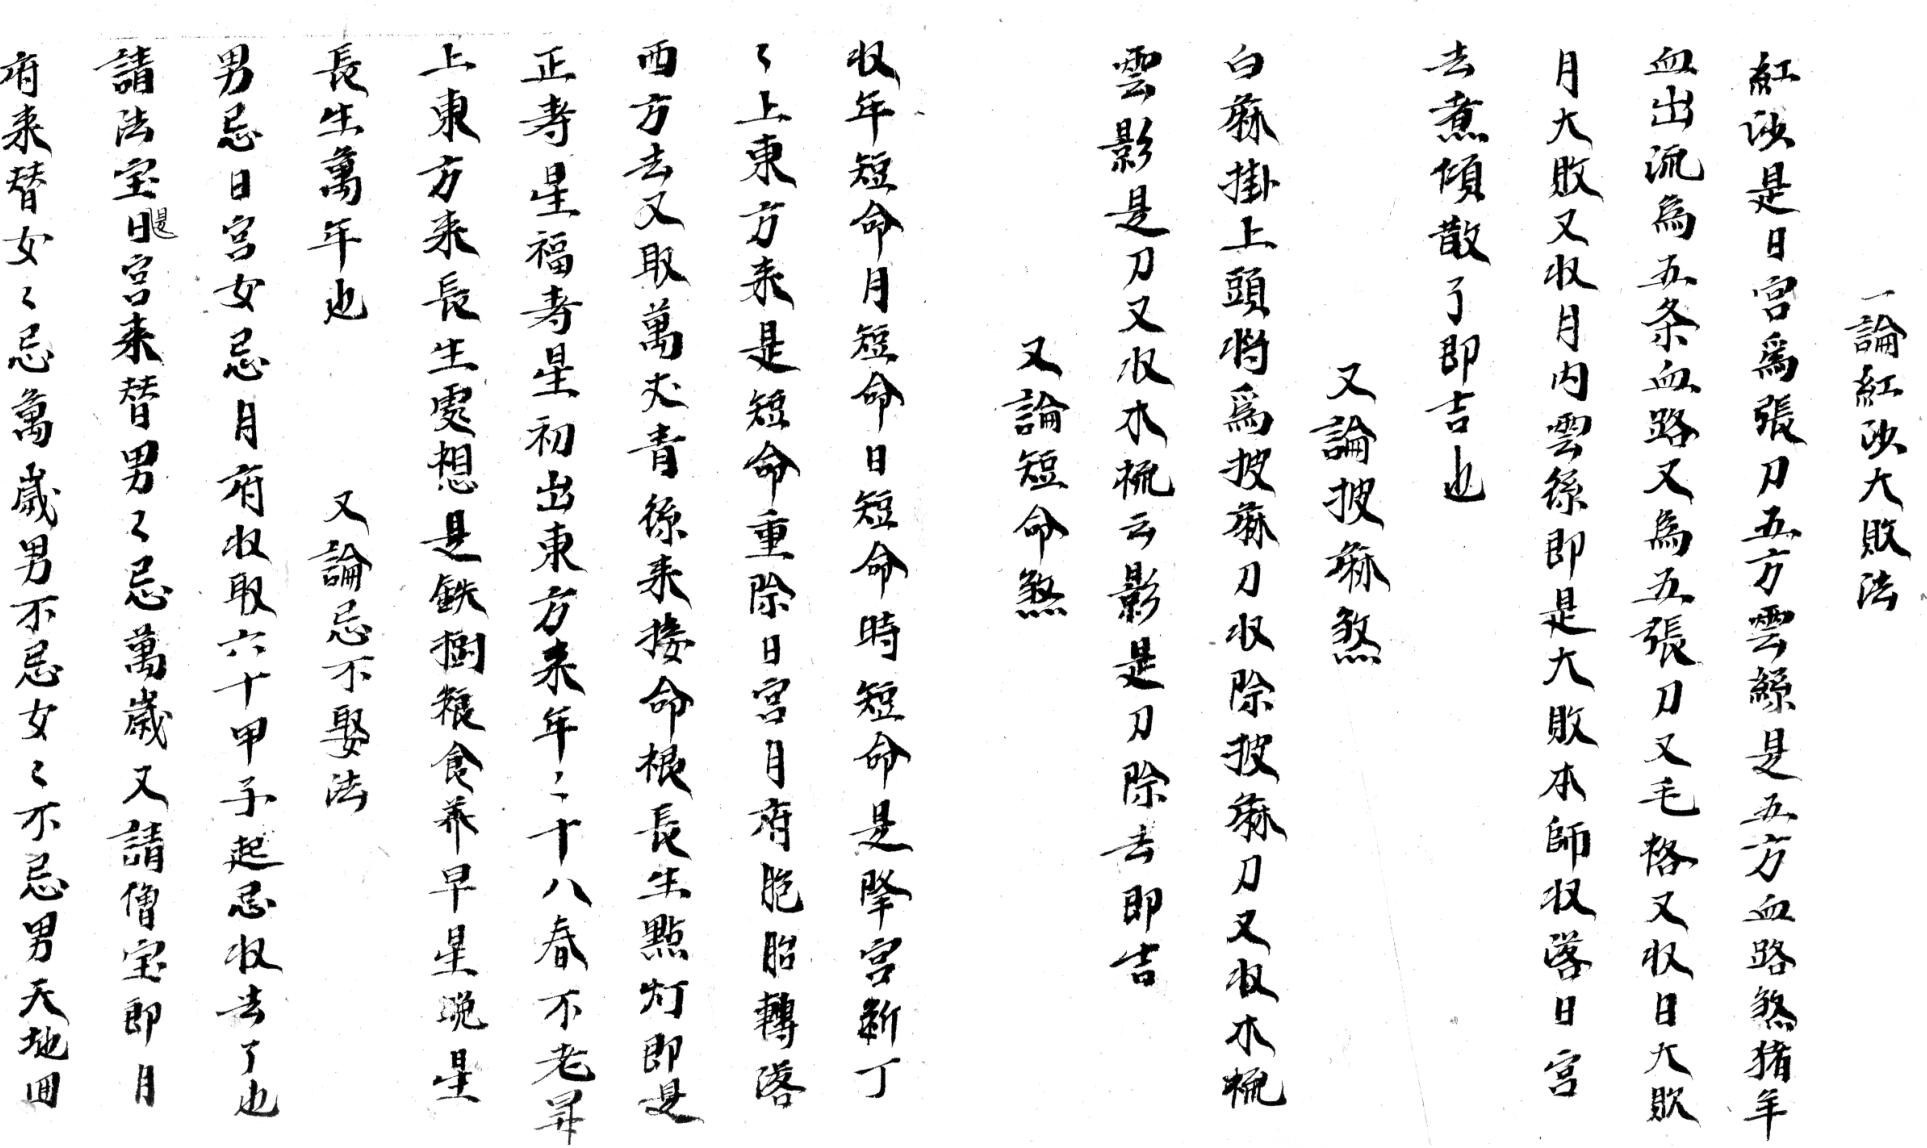 一論紅沙大敗法
紅沙是日宮爲張刀五方雲絲是五方血路煞猪年
血出流爲五条血路又爲五張刀又毛又收日大敗
月大敗又收月内雲絲即是大敗本師收落日宮
去煮傾散了即吉也
又論披麻煞
白麻掛上頭将爲披麻刀收除披麻刀又收木梳
雲影是刀又收木梳云影是刀除去即吉
又論短命煞
收年短命月短命日短命時短命是降宮新丁
〻上東方来是短命重除日宮月府胞胎轉落
西方去又取萬丈青絲来接命根長生點灯即是
正寿星福寿星初出東方来年〻十八春不老昇
上東方来長生處想是鉄樹粮食养早星晚星
長生萬年也
又論忌不娶法
男忌日宮女忌月府收取六十甲子起忌收去了也
請法宝是日宮来替男〻忌萬歲又請僧宝即月
府来替女〻忌萬歲男不忌女〻不忌男天地囬